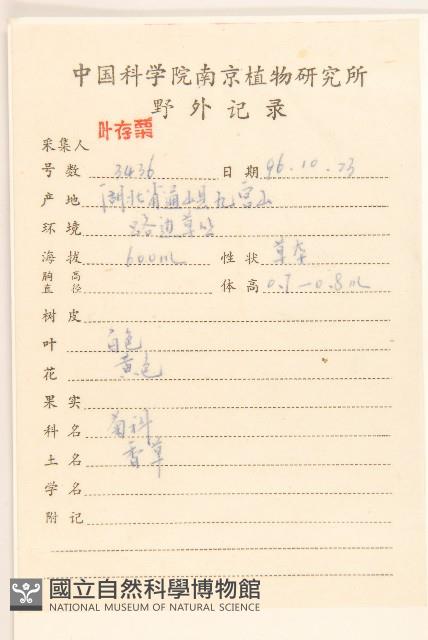 中国科学院南京植物研究所
野外记录
采集人 叶存粟
号数 3436 日期 96.10.23
产地 湖北省通山县九宫山
环境 路边草丛
海拔 600m 性状 草本
胸高直径 体高 0.7—0.8m
树皮
叶 白色
花 黄色
果实
科名 菊科
土名 香草
学名
附记
國立自然科學博物館
NATIONAL MUSEUM OF NATURAL SCIENCE